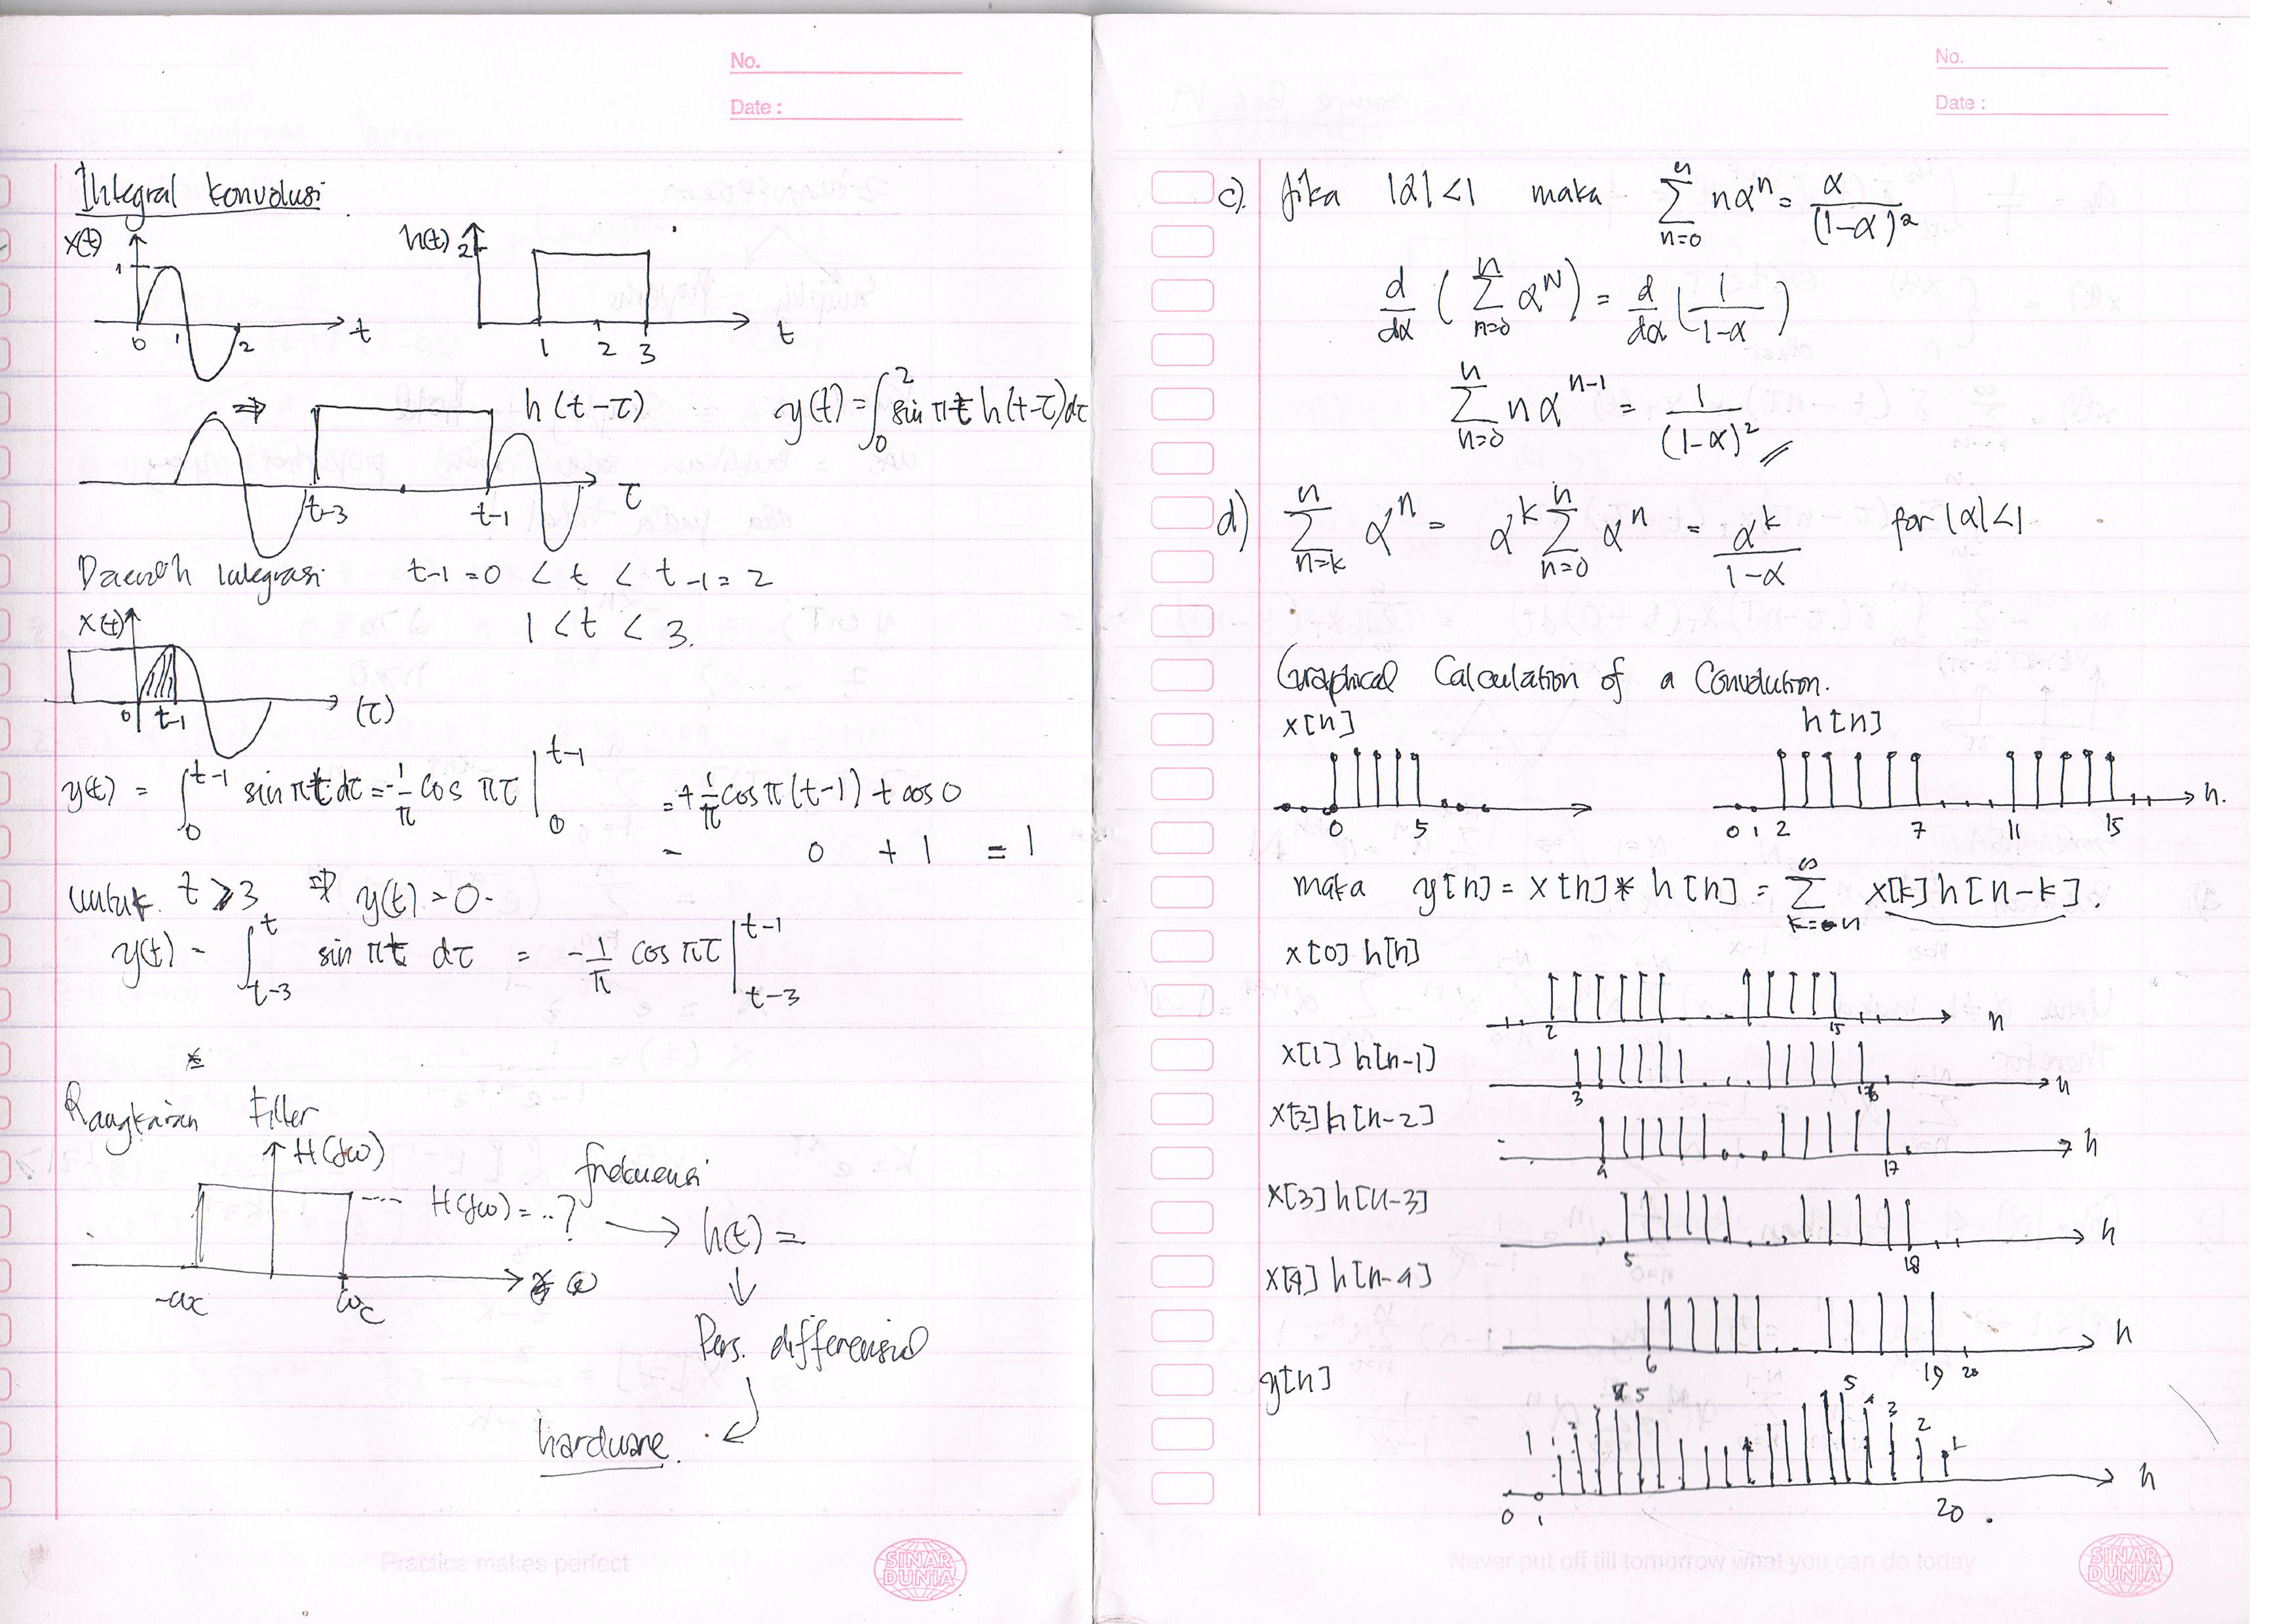 No.
Date :
Integral konvolusi
x(t)
1
0 1 2 t
h(t) 2
1 2 3 t
⇒ h(t-τ) y(t) = ∫₀² sin πτ h(t-τ)dτ
t-3 t-1 τ
Daerah Integrasi t-1=0 < t < t-1=2
1 < t < 3.
x(t)
0 t-1 (τ)
y(t) = ∫₀^{t-1} sin πτ dτ = -1/π cos πτ |₀^{t-1} = + 1/π cos π(t-1) + cos 0
= 0 + 1 = 1
untuk t ≥ 3 ⇒ y(t) = 0.
y(t) = ∫_{t-3}^{t} sin πτ dτ = -1/π cos πτ |_{t-3}^{t-1}
Rangkaian Filter
H(jω)
H(jω) = ..? frekuensi → h(t) =
-ωc ωc ω
↓
Pers. differensial
hardware.
Practice makes perfect
SINAR DUNIA
No.
Date :
c). Jika |α|<1 maka Σ_{n=0}^{n} nαⁿ = α/(1-α)²
d/dα ( Σ_{n=0}^{n} α^N ) = d/dα ( 1/(1-α) )
Σ_{n=0}^{n} nα^{n-1} = 1/(1-α)²
d) Σ_{n=k}^{n} αⁿ = α^k Σ_{n=0}^{n} αⁿ = α^k/(1-α) for |α|<1
Graphical Calculation of a Convolution.
x[n] h[n]
0 5
0 1 2 7 11 15 n.
maka y[n] = x[n] * h[n] = Σ x[k] h[n-k].
x[0] h[n]
2 15 n
x[1] h[n-1]
3 16 n
x[2] h[n-2]
4 17 n
x[3] h[n-3]
5 18 n
x[4] h[n-4]
6 19 20 n
y[n]
1 2 4 5 5 4 3 2 1
0 1 20 n
Never put off till tomorrow what you can do today
SINAR DUNIA